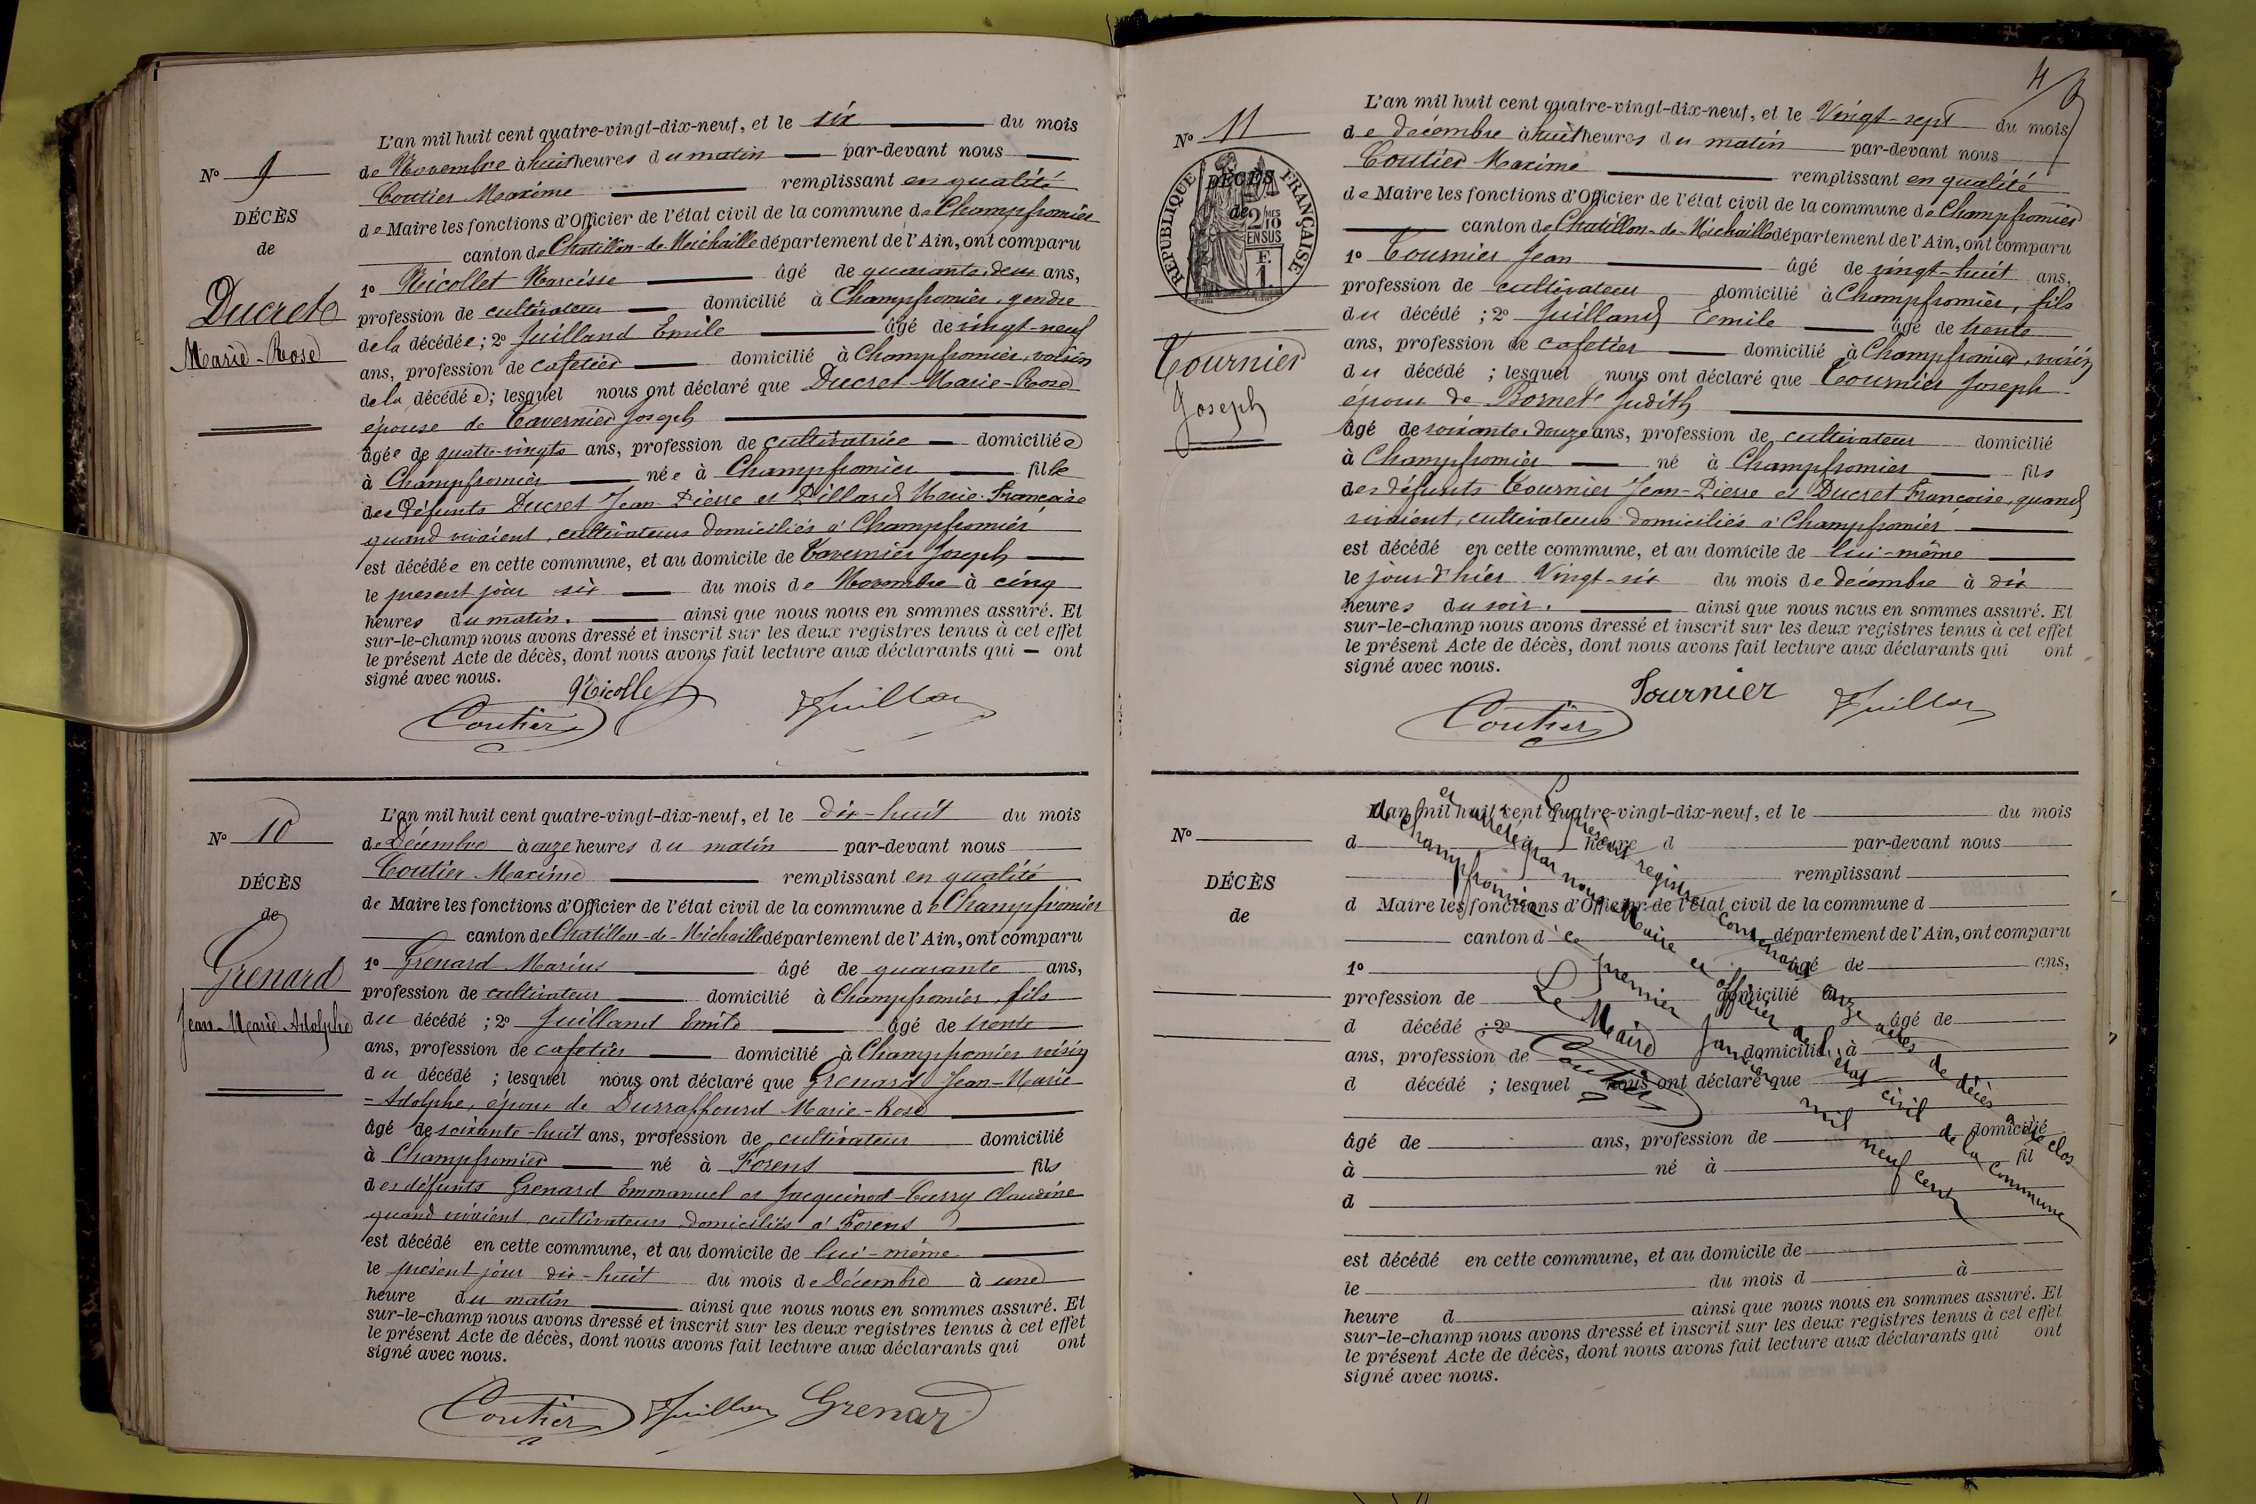 N° 9
DÉCÈS
de
Ducret
Marie-Rose
L'an mil huit cent quatre-vingt-dix-neuf, et le six du mois
de Novembre à huit heures du matin par-devant nous
Coutier Maxime remplissant en qualité
de Maire les fonctions d'Officier de l'état civil de la commune de Champfromier
canton de Chatillon-de-Michaille département de l'Ain, ont comparu
1° Nicollet Narcisse âgé de quarante-deux ans,
profession de cultivateur domicilié à Champfromier, gendre
de la décédée ; 2° Juilland Emile âgé de vingt-neuf
ans, profession de cafetier domicilié à Champfromier, voisin
de la décédée ; lesquel nous ont déclaré que Ducret Marie-Rose
épouse de Tavernier Joseph
âgée de quatre-vingts ans, profession de cultivatrice domiciliée
à Champfromier née à Champfromier fille
des défunts Ducret Jean-Pierre et Pillard Marie-Françoise
quand vivaient, cultivateurs domiciliés à Champfromier
est décédée en cette commune, et au domicile de Tavernier Joseph
le present jour six du mois de Novembre à cinq
heures du matin. ainsi que nous nous en sommes assuré. Et
sur-le-champ nous avons dressé et inscrit sur les deux registres tenus à cet effet
le présent Acte de décès, dont nous avons fait lecture aux déclarants qui — ont
signé avec nous.
Nicollet
Coutier Juillan
N° 10
DÉCÈS
de
Grenard
Jean-Marie-Adolphe
L'an mil huit cent quatre-vingt-dix-neuf, et le dix-huit du mois
de Décembre à onze heures du matin par-devant nous
Coutier Maxime remplissant en qualité
de Maire les fonctions d'Officier de l'état civil de la commune de Champfromier
canton de Chatillon-de-Michaille département de l'Ain, ont comparu
1° Grenard Marius âgé de quarante ans,
profession de cultivateur domicilié à Champfromier, fils
du décédé ; 2° Juilland Emile âgé de trente
ans, profession de cafetier domicilié à Champfromier voisin
du décédé ; lesquel nous ont déclaré que Grenard Jean-Marie
-Adolphe, époux de Durraffourd Marie-Rose
âgé de soixante-huit ans, profession de cultivateur domicilié
à Champfromier né à Forens fils
des défunts Grenard Emmanuel et Jacquinod-Curry Claudine
quand vivaient cultivateurs domiciliés à Forens
est décédé en cette commune, et au domicile de lui-même
le présent jour dix-huit du mois de Décembre à une
heure du matin ainsi que nous nous en sommes assuré. Et
sur-le-champ nous avons dressé et inscrit sur les deux registres tenus à cet effet
le présent Acte de décès, dont nous avons fait lecture aux déclarants qui ont
signé avec nous.
Coutier Juillan Grenar
N° 11
RÉPUBLIQUE FRANÇAISE
DÉCÈS
de
2/10 MES
EN SUS
F.
1.
Tournier
Joseph
L'an mil huit cent quatre-vingt-dix-neuf, et le Vingt-sept du mois
de décembre à huit heures du matin par-devant nous
Coutier Maxime remplissant en qualité
de Maire les fonctions d'Officier de l'état civil de la commune de Champfromier
canton de Chatillon-de-Michaille département de l'Ain, ont comparu
1° Tournier Jean âgé de vingt-huit ans,
profession de cultivateur domicilié à Champfromier, fils
du décédé ; 2° Juilland Emile âgé de trente
ans, profession de cafetier domicilié à Champfromier, voisin
du décédé ; lesquel nous ont déclaré que Tournier Joseph
époux de Bornet Judith
âgé de soixante-douze ans, profession de cultivateur domicilié
à Champfromier né à Champfromier fils
des défunts Tournier Jean-Pierre et Ducret Françoise, quand
vivaient, cultivateurs domiciliés à Champfromier
est décédé en cette commune, et au domicile de lui-même
le jour d'hier Vingt-six du mois de décembre à dix
heures du soir. ainsi que nous nous en sommes assuré. Et
sur-le-champ nous avons dressé et inscrit sur les deux registres tenus à cet effet
le présent Acte de décès, dont nous avons fait lecture aux déclarants qui ont
signé avec nous.
Tournier
Coutier Juillan
N°
DÉCÈS
de
L'an mil huit cent quatre-vingt-dix-neuf, et le du mois
d heure d par-devant nous
remplissant
d Maire les fonctions d'Officier de l'état civil de la commune d
canton d département de l'Ain, ont comparu
1° âgé de ans,
profession de domicilié à
d décédé ; 2° âgé de
ans, profession de domicilié à
d décédé ; lesquel nous ont déclaré que
âgé de ans, profession de domicilié
à né à fil
d
est décédé en cette commune, et au domicile de
le du mois d à
heure d ainsi que nous nous en sommes assuré. Et
sur-le-champ nous avons dressé et inscrit sur les deux registres tenus à cet effet
le présent Acte de décès, dont nous avons fait lecture aux déclarants qui ont
signé avec nous.
Le présent registre contenant onze actes de décès a été clos
et arrêté par nous Maire et officier de l'état civil de la commune
de Champfromier ce premier Janvier mil neuf cent
Le Maire
Coutier